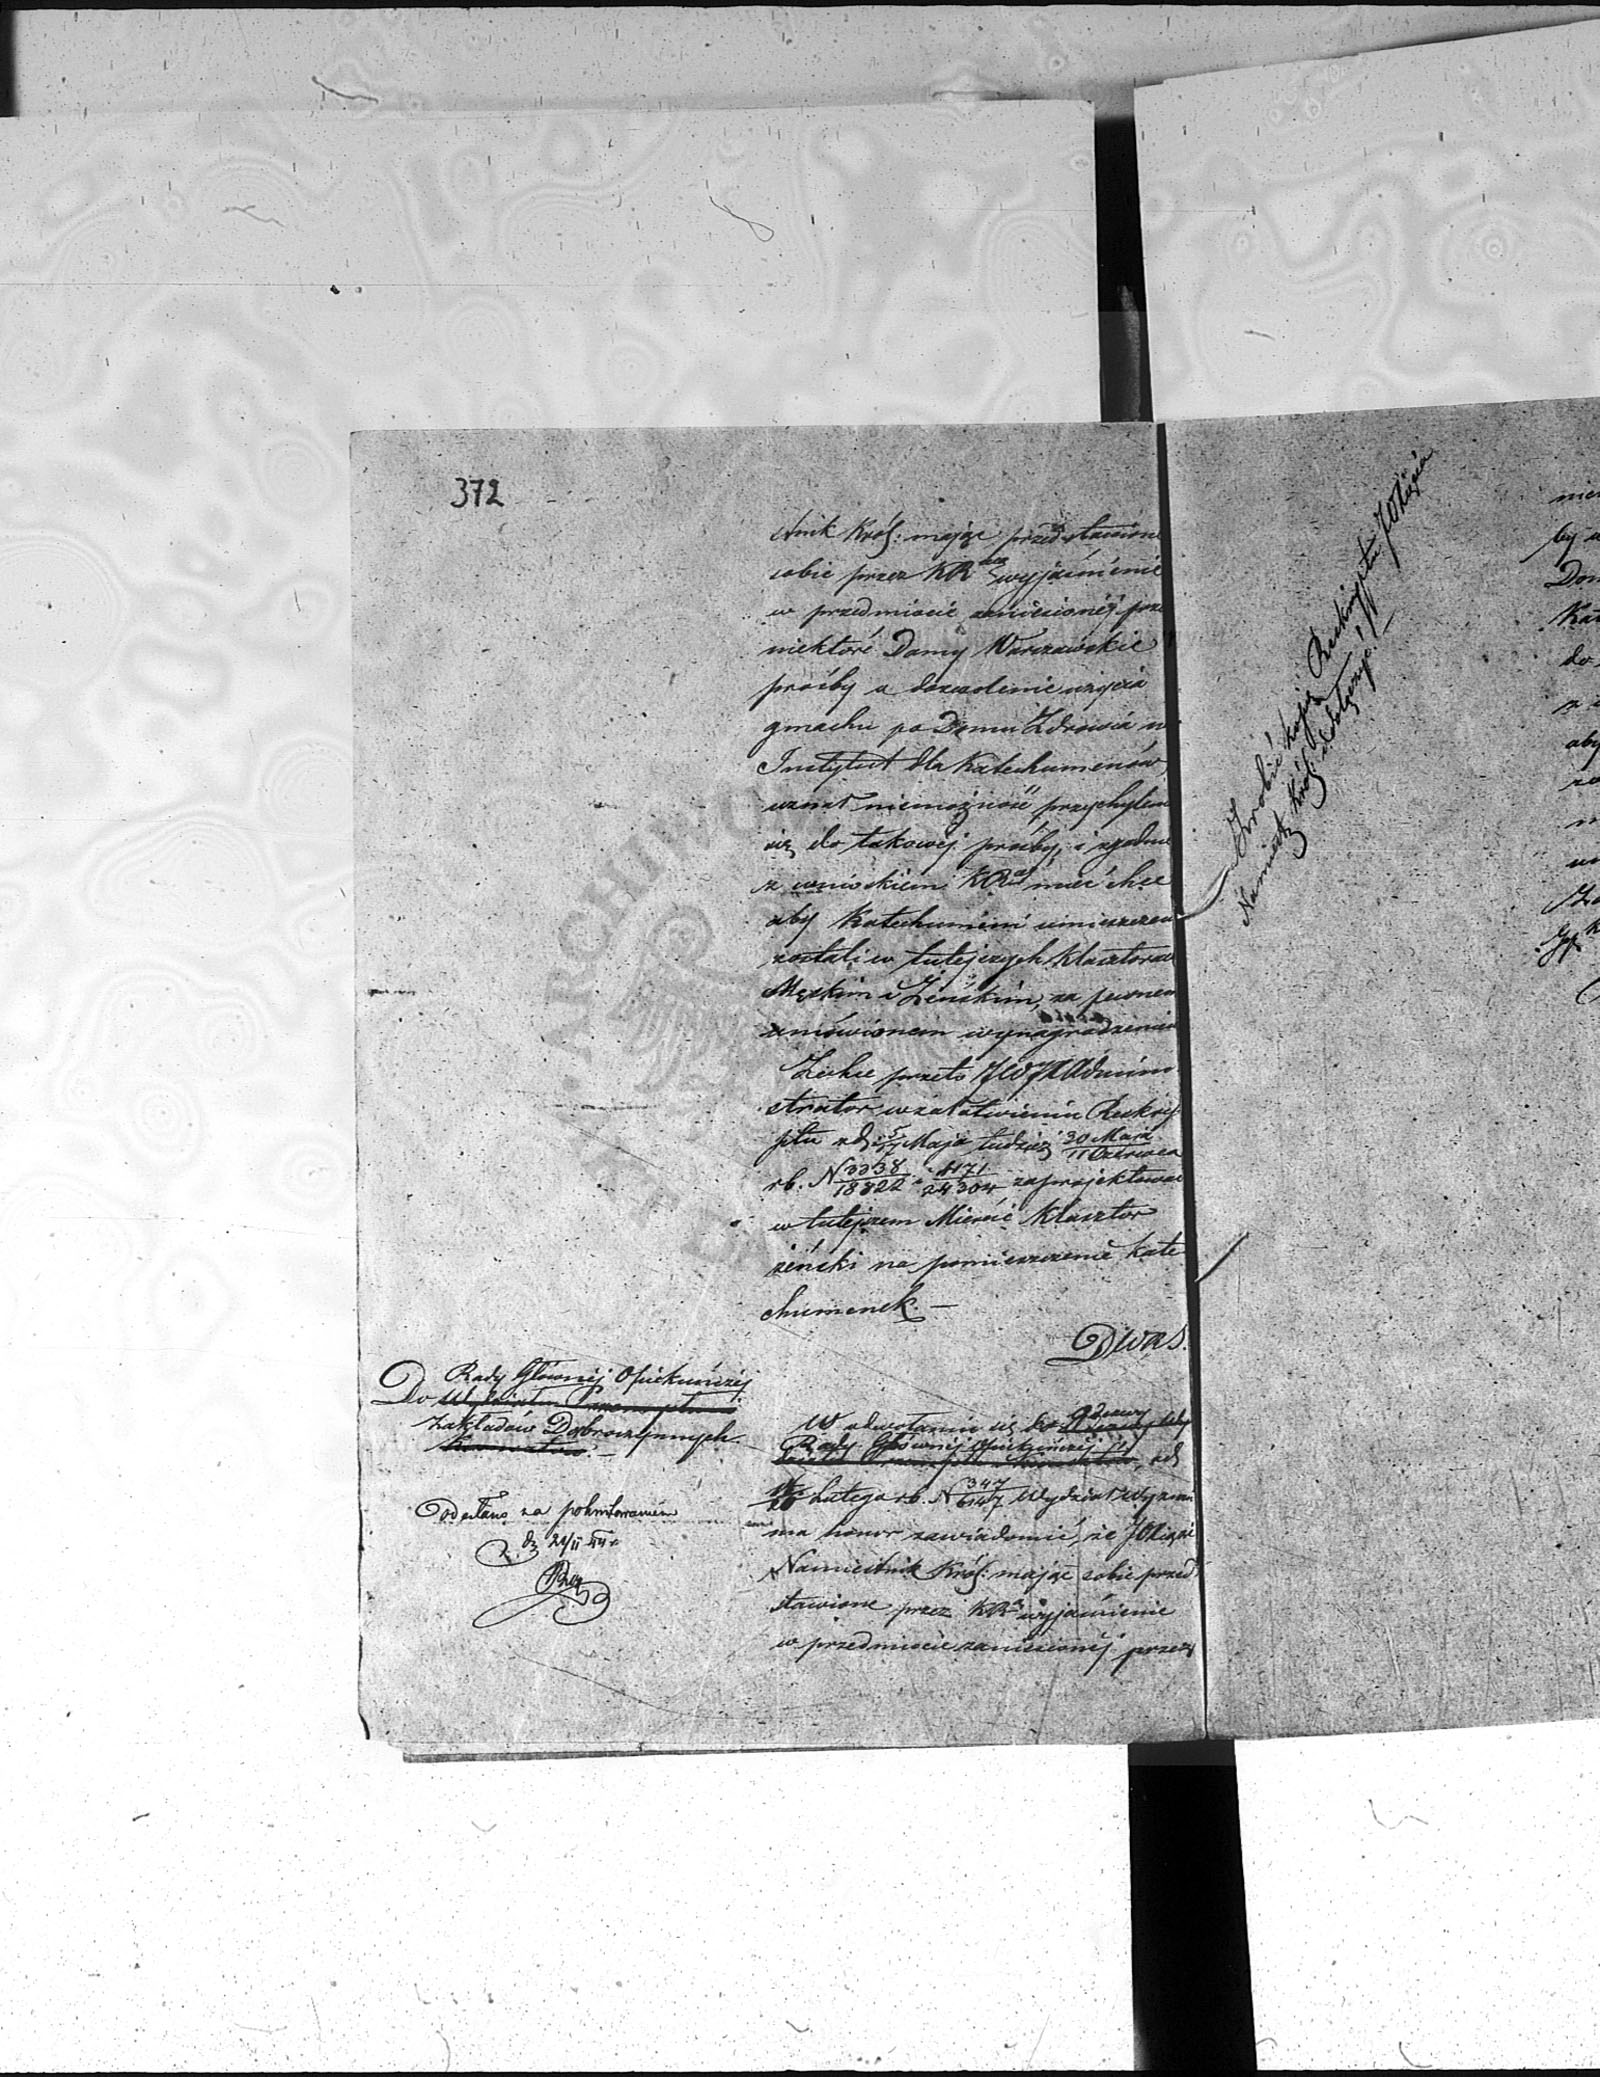 372
stnik Król: mając przedstawione
sobie przez KR wyjaśnienie
w przedmiocie zaniesionéj prze
niektóre Damy Warszawskie
prośby o dozwolenie użycia
gmachu po Domu Zdrowia na
Instytut dla Katechumenów,
uznał niemożność przychylenia
się do takowéj prośby, i zgodnie
z wnioskiem KR mieć chce
aby Katechumeni umieszczeni
zostali w tutejszych Klasztorach
Męzkim i Żeńskim, za pewnem
umówionem wynagrodzeniem
Zechce przeto JWJX Admini
strator w załatwieniu Reskry
ptu z d: 5/17 Maja tudzież 30 Maja/11 Czerwca
rb. N 3338/18822 i 4171/24304 zaprojektować
w tutejszem Mieście Klasztor
żeński na pomieszczenie Kate
chumenek. —
DWAS.
Rady Głównéj Opiekuńczéj
Do
Zakładów Dobroczynnych.
Odesłano za pokwitowaniem
W odwołaniu się do odezwy
Rady Głównéj Opiekuńczéj
Lutego rb. N 347/6147 Wydział Wyznań
ma honor zawiadomić, że JOXiąże
Namiestnik Król: mając sobie przed
stawione przez KR wyjaśnienie
w przedmiocie zaniesionéj przez
Zrobić kopią Reskryptu JOXięcia
Namiestn. Król: i dołączyć. —
by
Dom
Kat
do
aby